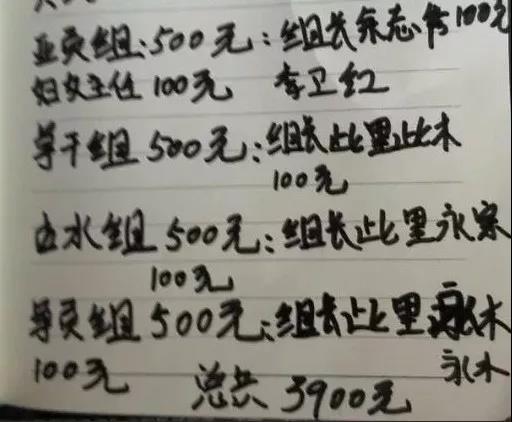 亚贡组:500元:组长杂志伟100元
妇女主任100元 李卫红
导干组500元:组长比里比木
100元
由水组500元:组长比里永家
100元
导贡组500元:组长比里永木
100元 永木
总共3900元